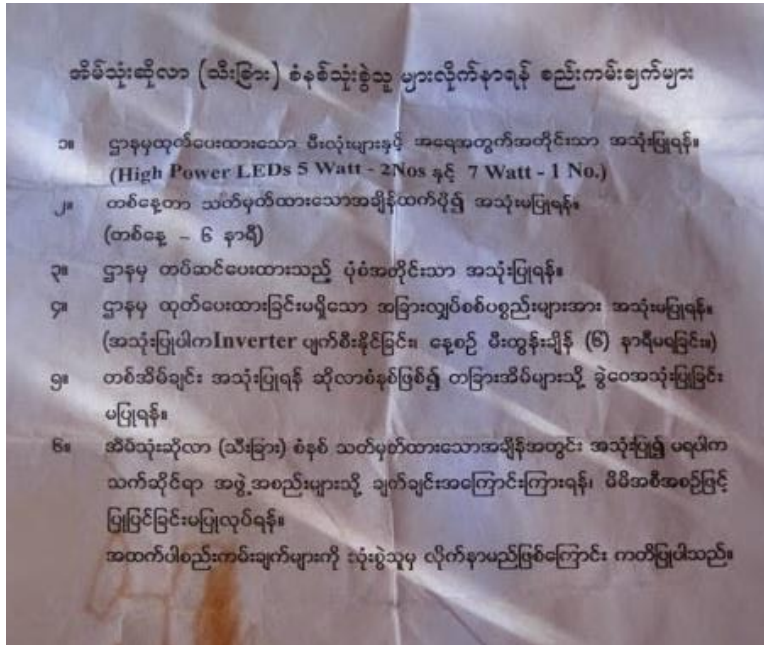 အိမ်သုံးဆိုလာ (သီးခြား) စံနစ်သုံးစွဲသူ များလိုက်နာရန် စည်းကမ်းချက်များ
၁။ ဌာနမှထုတ်ပေးထားသော မီးလုံးများနှင့် အရေအတွက်အတိုင်းသာ အသုံးပြုရန်။
(High Power LEDs 5 Watt - 2Nos နှင့် 7 Watt - 1 No.)
၂။ တစ်နေ့တာ သတ်မှတ်ထားသောအချိန်ထက်ပို၍ အသုံးမပြုရန်။
(တစ်နေ့ - ၆ နာရီ)
၃။ ဌာနမှ တပ်ဆင်ပေးထားသည့် ပုံစံအတိုင်းသာ အသုံးပြုရန်။
၄။ ဌာနမှ ထုတ်ပေးထားခြင်းမရှိသော အခြားလျှပ်စစ်ပစ္စည်းများအား အသုံးမပြုရန်။
(အသုံးပြုပါကInverter ပျက်စီးနိုင်ခြင်း၊ နေ့စဉ် မီးထွန်းချိန် (၆) နာရီမရခြင်း။)
၅။ တစ်အိမ်ချင်း အသုံးပြုရန် ဆိုလာစံနစ်ဖြစ်၍ တခြားအိမ်များသို့ ခွဲဝေအသုံးပြုခြင်း
မပြုရန်။
၆။ အိမ်သုံးဆိုလာ (သီးခြား) စံနစ် သတ်မှတ်ထားသောအချိန်အတွင်း အသုံးပြု၍ မရပါက
သက်ဆိုင်ရာ အဖွဲ့အစည်းများသို့ ချက်ချင်းအကြောင်းကြားရန်၊ မိမိအစီအစဉ်ဖြင့်
ပြုပြင်ခြင်းမပြုလုပ်ရန်။
အထက်ပါစည်းကမ်းချက်များကို သုံးစွဲသူမှ လိုက်နာမည်ဖြစ်ကြောင်း ကတိပြုပါသည်။